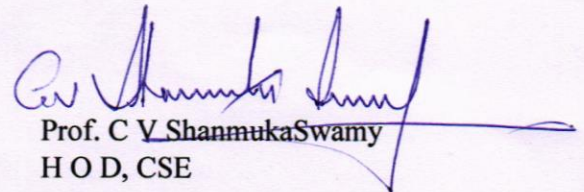 Prof. C V ShanmukaSwamy
H O D, CSE